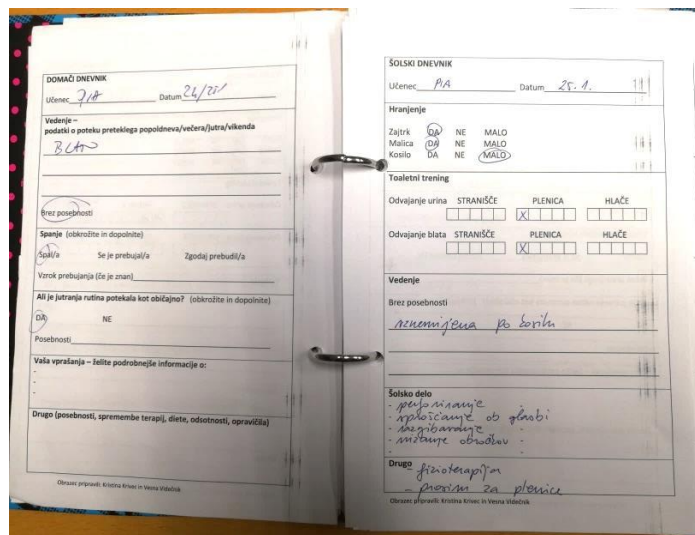 DOMAČI DNEVNIK
Učenec PIA Datum 24/25/
Vedenje –
podatki o poteku preteklega popoldneva/večera/jutra/vikenda
BLATO
Brez posebnosti
Spanje (obkrožite in dopolnite)
Spal/a Se je prebujal/a Zgodaj prebudil/a
Vzrok prebujanja (če je znan)
Ali je jutranja rutina potekala kot običajno? (obkrožite in dopolnite)
DA NE
Posebnosti
Vaša vprašanja – želite podrobnejše informacije o:
-
-
-
Drugo (posebnosti, spremembe terapij, diete, odsotnosti, opravičila)
Obrazec pripravili: Kristina Krivec in Vesna Videčnik
ŠOLSKI DNEVNIK
Učenec PIA Datum 25.1.
Hranjenje
Zajtrk DA NE MALO
Malica DA NE MALO
Kosilo DA NE MALO
Toaletni trening
Odvajanje urina STRANIŠČE PLENICA HLAČE
X
Odvajanje blata STRANIŠČE PLENICA HLAČE
X
Vedenje
Brez posebnosti
vznemirjena po kosilu
Šolsko delo
- perforiranje -
- sproščanje ob glasbi
- razgibavanje -
- nizanje obročkov -
Drugo - fizioterapija
- prosim za plenice
Obrazec pripravili: Kristina Krivec in Vesna Videčnik